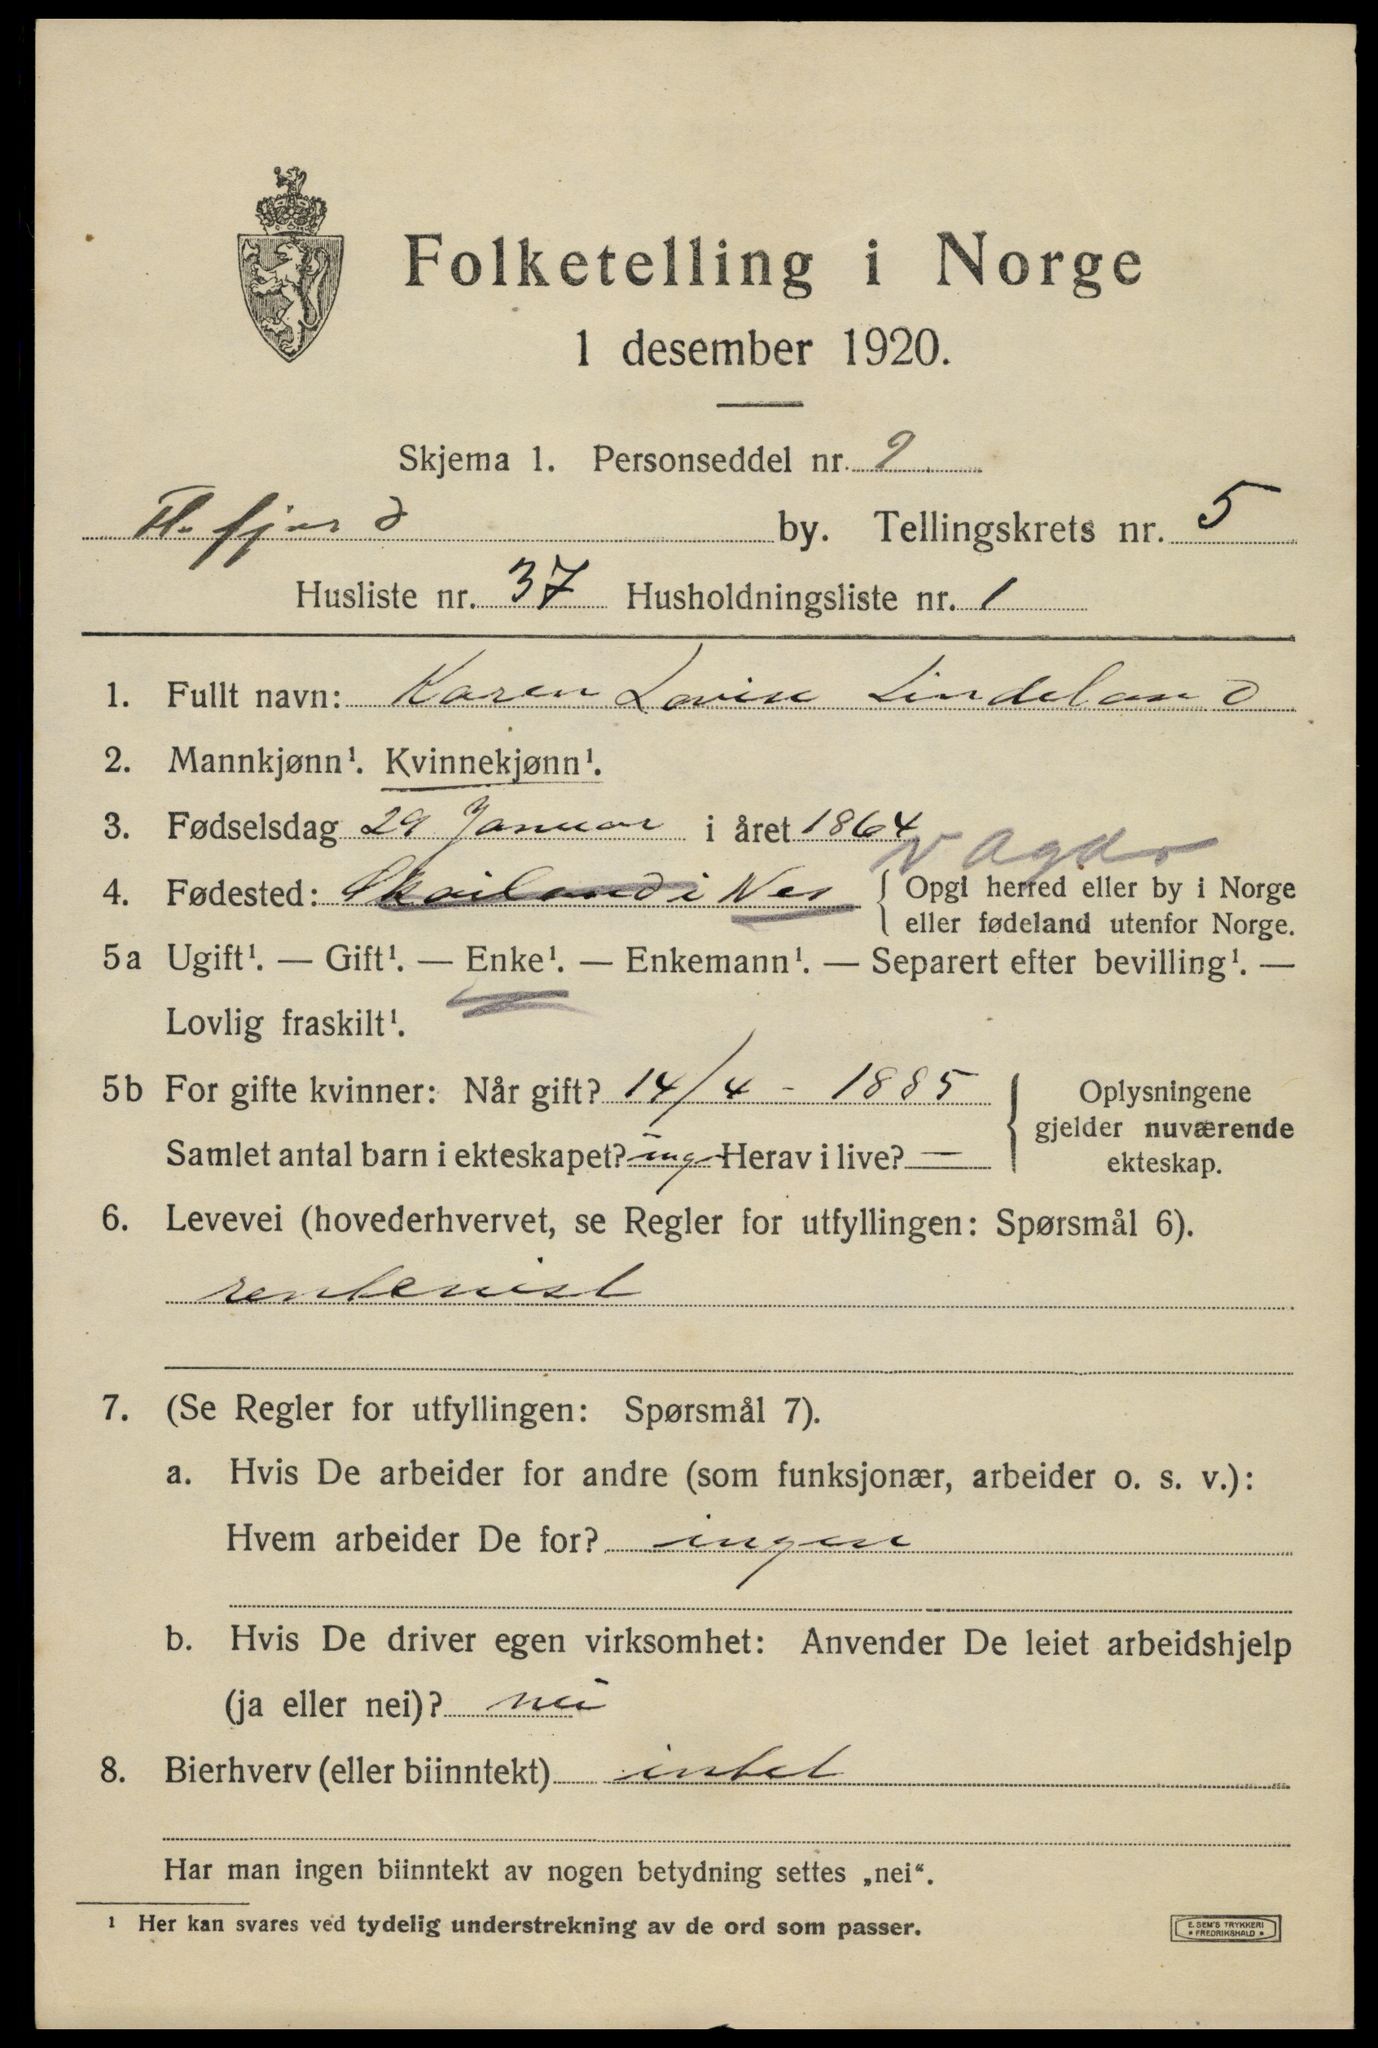 Folketelling i Norge
1 desember 1920.
Skjema 1. Personseddel nr. 2
Fl.fjord by. Tellingskrets nr. 5
Husliste nr. 37 Husholdningsliste nr. 1
1. Fullt navn: Karen Lovise Lindeland
2. Mannkjønn¹. Kvinnekjønn¹.
3. Fødselsdag 29 Januar i året 1864
V Agder
4. Fødested: i Nes Opgi herred eller by i Norge
eller fødeland utenfor Norge.
5a Ugift¹. — Gift¹. — Enke¹. — Enkemann¹. — Separert efter bevilling¹. —
Lovlig fraskilt¹.
5b For gifte kvinner: Når gift? 14/4 - 1885 Oplysningene
gjelder nuværende
ekteskap.
Samlet antal barn i ekteskapet? ing. Herav i live? —
6. Levevei (hovederhvervet, se Regler for utfyllingen: Spørsmål 6).
rentenist
7. (Se Regler for utfyllingen: Spørsmål 7).
a. Hvis De arbeider for andre (som funksjonær, arbeider o. s. v.):
Hvem arbeider De for? ingen
b. Hvis De driver egen virksomhet: Anvender De leiet arbeidshjelp
(ja eller nei)? nei
8. Bierhverv (eller biinntekt) intet
Har man ingen biinntekt av nogen betydning settes „nei“.
¹ Her kan svares ved tydelig understrekning av de ord som passer.
E. SEM'S TRYKKERI
* FREDRIKSHALD *